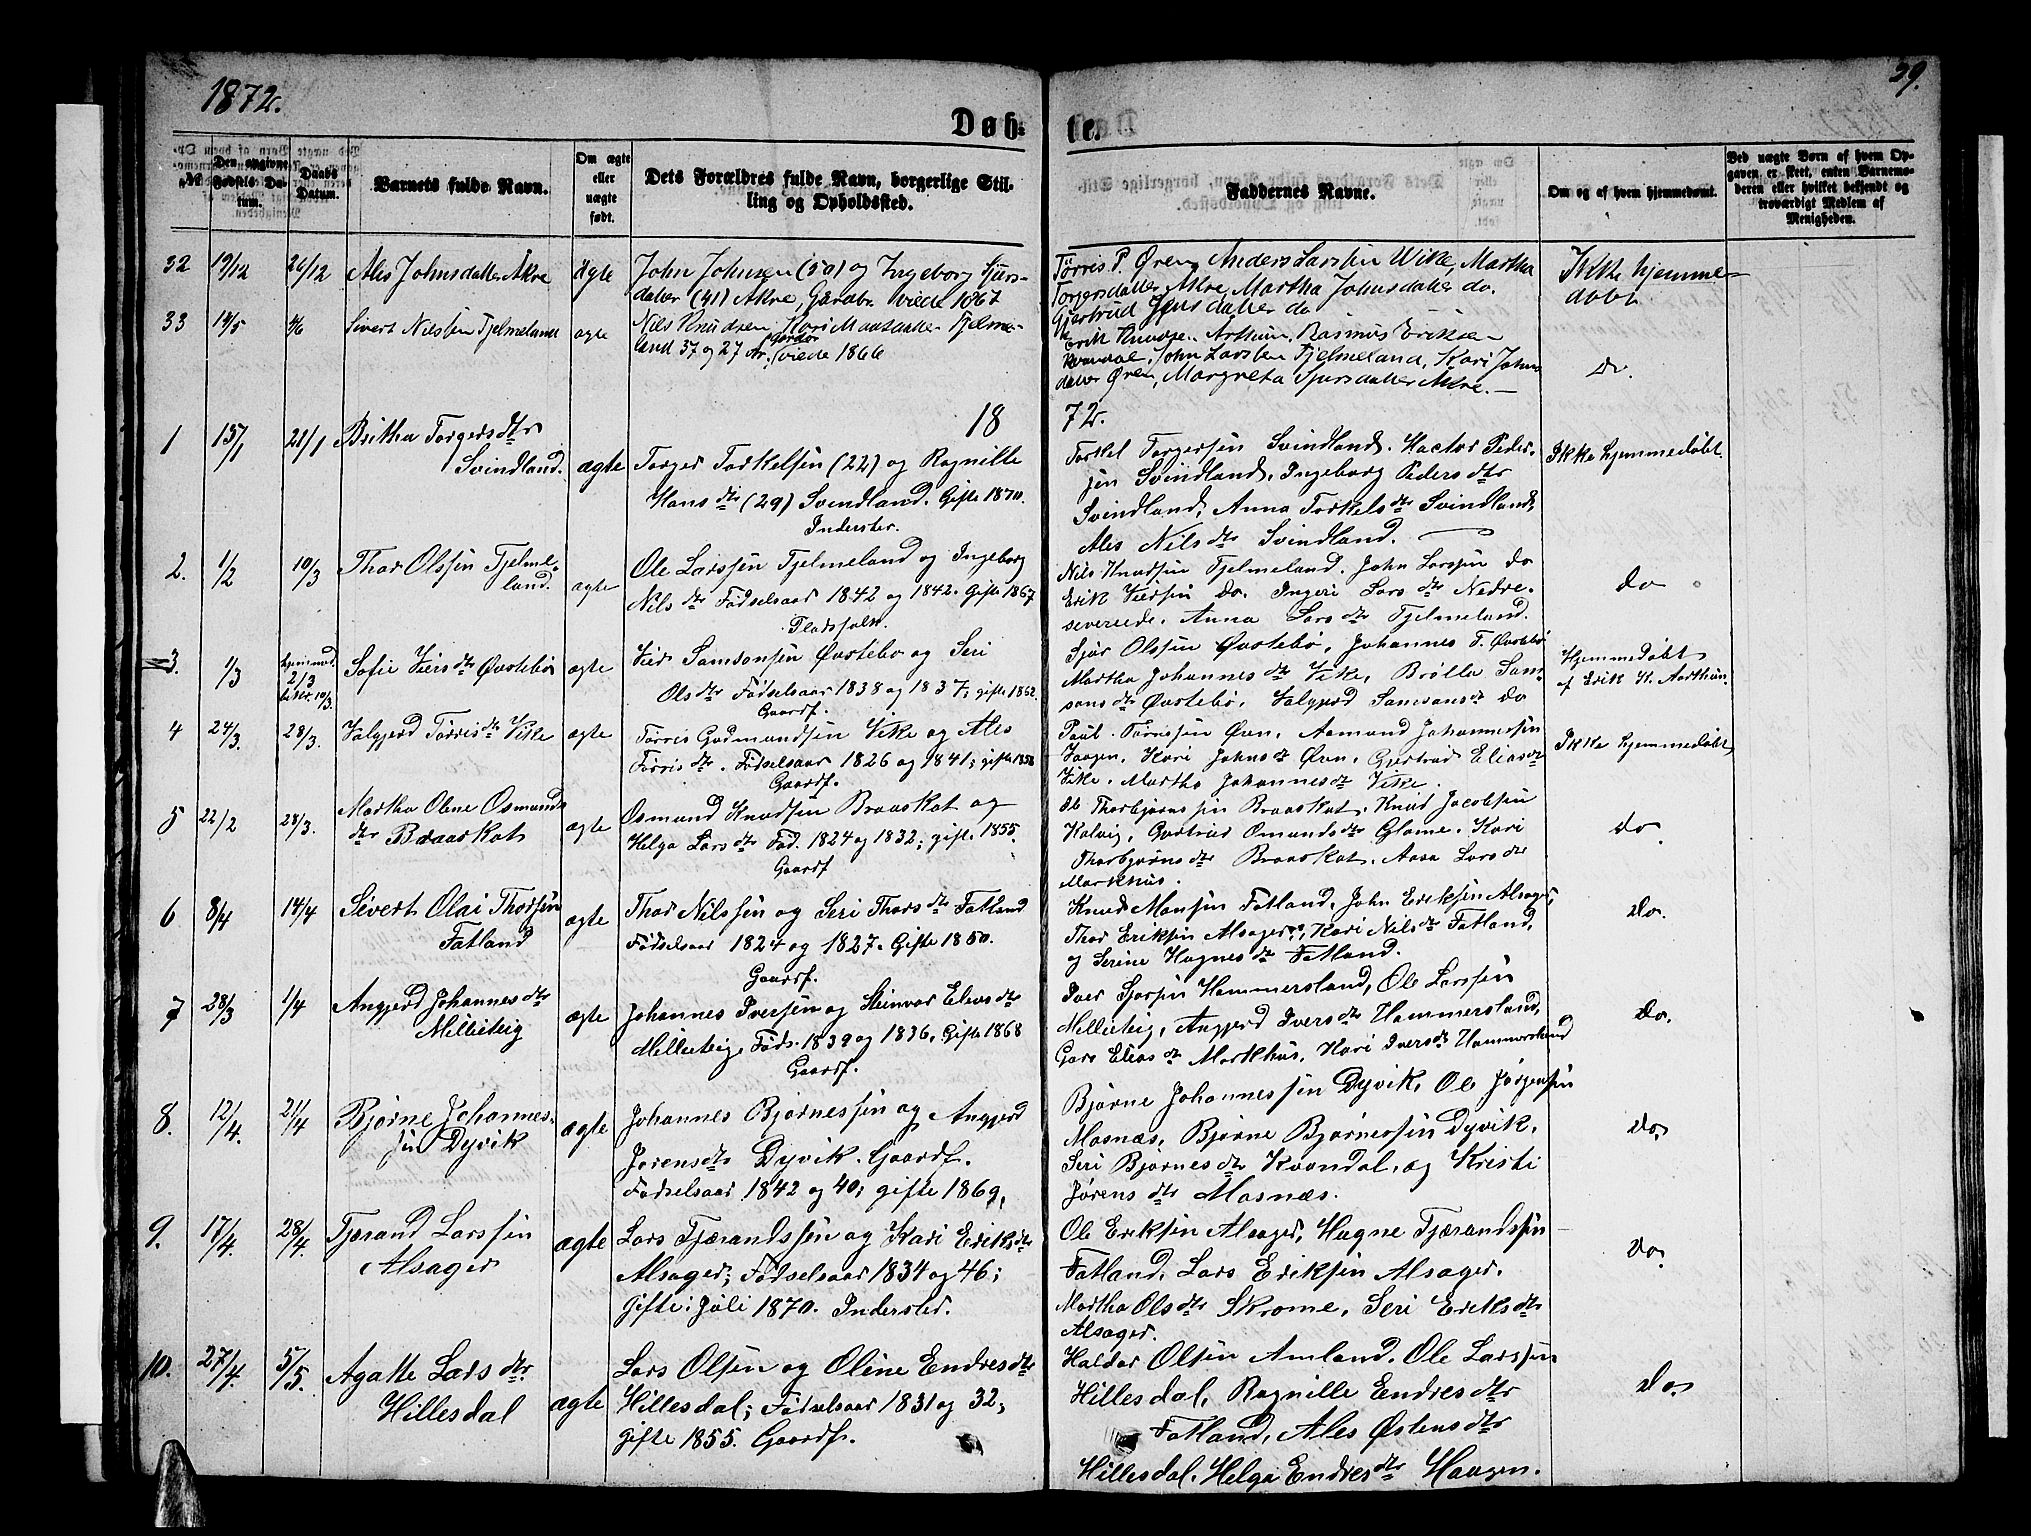 1872.
39.
Døb-
te.
№
Den angivne Fødsels Datum.
Daabs Datum.
Barnets fulde Navn.
Om ægte eller uægte født.
Dets Forældres fulde Navn, borgerlige Stilling og Opholdssted.
Faddernes Navne.
Om og af hvem hjemmedømt.
Ved uægte Børn af hvem Opgaven er skeet, enten Barnemoderen eller hvilket bekjendt og troværdigt Medlem af Menigheden.
32 19/12 26/12 Ales Johnsdatter Akre ægte
John Johnsen (50) og Ingeborg Sjurs-
datter (41) Akre, Gaardbr. viede 1867
Tørris P. Øren, Anders Larssen Wike, Martha
Torgersdatter Akre, Martha Johnsdatter do.
Gjertrud Sjursdatter do
Ikke hjemme-
døbt
33 14/5 Sivert Nilssen Fjelmeland ægte
Nils Knudsen, Kari Madsdatter Fjelme-
land 37 og 27 Ar. viede 1866
Erik Knudse. Arthun, Rasmus Eriksen
Kvandal, John Larssen Fjelmeland, Kari Johns
datter Øren, Margreta Sjursdatter Akre. —
do.
1872.
1 15/1 21/1 Britha Torgers dtr
Svindland. ægte
Torger Torkelsen (22) og Ragnille
Hans dtr (29) Svindland. Gifte 1870.
Inderster.
Torkel Torgersen Svindland. Hactor Peder-
sen Svindland, Ingeborg Peders dtr
Svindland, Anna Torkels dtr Svindland,
Ales Nils dtr Svindland. —
Ikke hjemmedøbt.
2. 1/2 10/3 Thor Olssen Fjelme-
land. ægte
Ole Larssen Fjelmeland og Ingeborg
Nils dtr Fødselsaar 1842 og 1842. Gifte 1867
Pladsfolk.
Nils Knudsen Fjelmeland, John Larssen do
Erik Viersen do. Ingeri Lars dtr Nedre-
severeide. Anna Lars dtr Fjelmeland.
do
3. 1/3 hjemmed. 2/3 10/3. Sofie Viers dtr Øvstebø ægte
Vier Samsonsen Øvstebø og Seri
Ols dtr Fødselsaar 1838 og 1837; gifte 1862.
Gaardf.
Sjur Olssen Øvstebø, Johannes T. Øvstebø
Martha Johannes dtr Vike, Brølla Sam-
sons dtr Øvstebø, Valgjerd Samsons dtr do
Hjemmedøbt
af Erik K. Aarthun.
4 24/3. 28/3. Valgjerd Tørris dtr Vike ægte
Tørris Gudmundsen Vike og Ales
Tørris dtr. Fødselsaar 1826 og 1841; gifte 1858
Gaardf.
Paul Tørrisen Øren, Aamund Johannessen
Haagen, Kari Johns dtr Øren, Gjertrud Elias dtr
Vike, Martha Johannes dtr Vike.
Ikke hjemmedøbt
5 22/2 28/3. Martha Oline Osmunds
dtr Braaskat ægte
Osmund Knudsen Braaskat og
Helga Lars dtr Fød. 1824 og 1832; gifte 1855.
Gaardf
Ole Thorbjørnssen Braaskat, Knud Jacobsen
Kalvig, Gjertrud Omunds dtr Glame. Kari
Thorbjørns dtr Braaskat, Aasa Lars dtr
Markhus.
do.
6 8/4 14/4 Sivert Olai Thorsen
Fatland ægte
Thor Nilssen og Seri Thors dtr Fatland
Fødselsaar 1824 og 1827. Gifte 1850.
Gaardf.
Knud Monsen Fatland, John Eriksen Alsager,
Thor Eriksen Alsager, Kari Nils dtr Fatland,
og Serine Hagnes dtr Fatland.
do.
7 28/3 1/4 Angjerd Johannes dtr
Millieteig ægte
Johannes Iversen og Steinvor Elias dtr
Millieteig. Føds. 1839 og 1836. Gifte 1868
Gaardf.
Iver Sjursen Hammersland, Ole Larssen
Millieteig, Angjerd Ivers dtr Hammersland,
Guro Elias dtr Markhus, Kari Ivers dtr Hammersland
do.
8. 12/4. 21/4 Bjørne Johannes-
sen Dyvik ægte
Johannes Bjørnessen og Angjerd
Jørens dtr Dyvik. Gaardf.
Fødselsaar 1842 og 40; gifte 1869,
Bjørne Johannessen Dyvik, Ole Jørgensen
Mosnæs, Bjørne Bjørnessen Dyvik,
Seri Bjørnes dtr Kvandal, og Kristi
Jørens dtr Mosnæs.
do.
9. 17/4. 28/4. Tjerand Larssen
Alsager ægte
Lars Tjærandssen og Kari Eriks dtr
Alsager; Fødselsaar 1834 og 46;
gifte i Juli 1870. Inderster.
Ole Eriksen Alsager, Hagne Tjærandsen
Fatland, Lars Eriksen Alsager,
Martha Ols dtr Skrome, Seri Eriks dtr
Alsager.
do.
10. 27/4. 5/5. Agatte Lars dtr
Hillesdal ægte
Lars Olsen og Oline Endres dtr
Hillesdal; Fødselsaar 1831 og 32;
gifte 1855. Gaardf.
Haldor Olsen Amland, Ole Larssen
Hillesdal, Ragnille Endres dtr
Fatland, Ales Østens dtr
Hillesdal. Helga Endres dtr Haagen.
do.